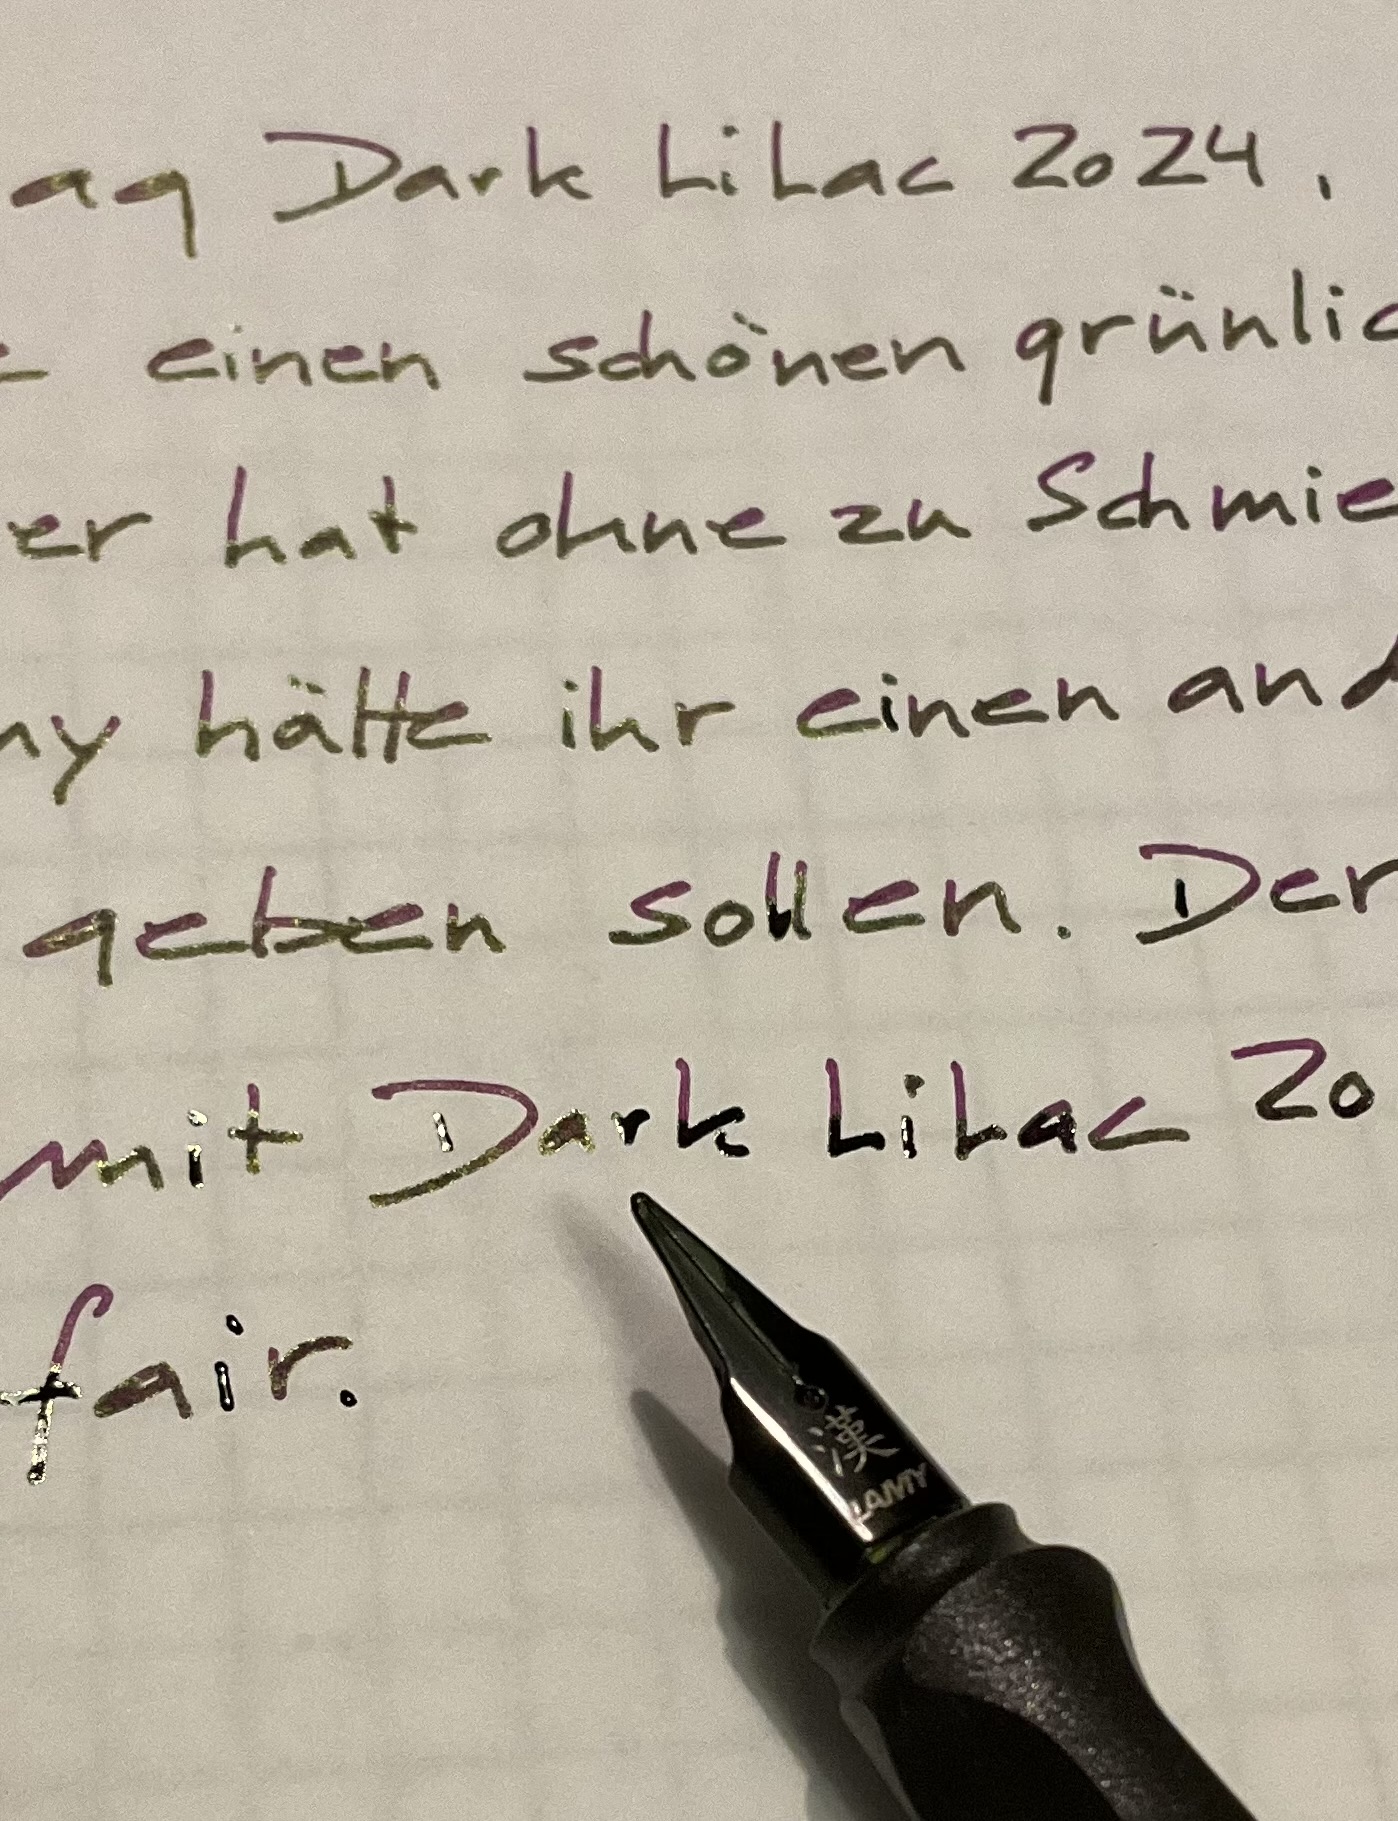 ag Dark Lilac 2024,
einen schönen grünlic
er hat ohne zu Schmie
ny hätte ihr einen and
geben sollen. Der
mit Dark Lilac 20
fair.
漢
LAMY